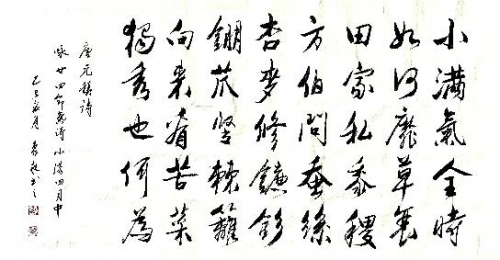 小滿氣全時
如何靡草衰
田家私黍稷
方伯問蚕絲
杏麥修鐮釤
錋苽竪棘籬
向来看苦菜
獨秀也何為
唐元稹詩
咏廿四節氣詩 小滿四月中